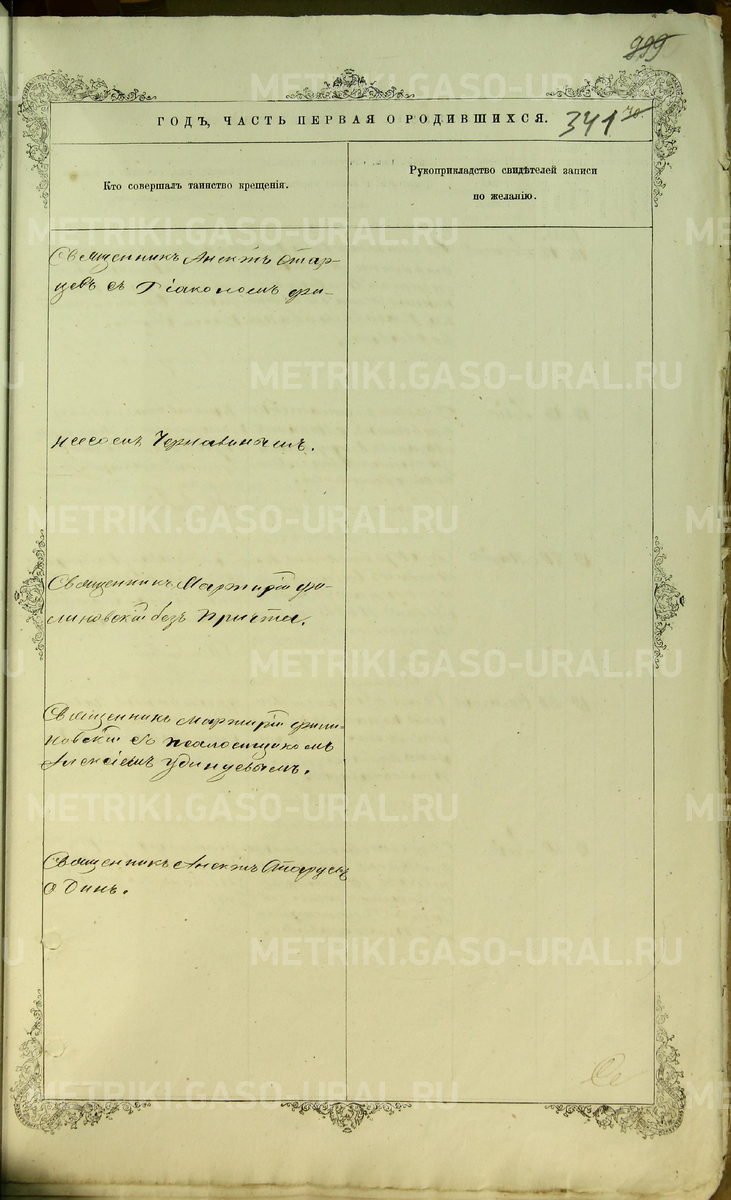 299
ГОДЪ, ЧАСТЬ ПЕРВАЯ О РОДИВШИХСЯ.
341
Кто совершалъ таинство крещенія.
Рукоприкладство свидѣтелей записи
по желанію.
Священникъ Старцевъ
съ Діакономъ
Чернавинымъ.
Священникъ Мартирій Фи-
линовскій безъ причта.
Священникъ Мартирій Фили-
новскій съ псаломщикомъ
Алексѣемъ Удинцевымъ.
Священникъ Старцевъ
одинъ.
METRIKI.GASO-URAL.RU